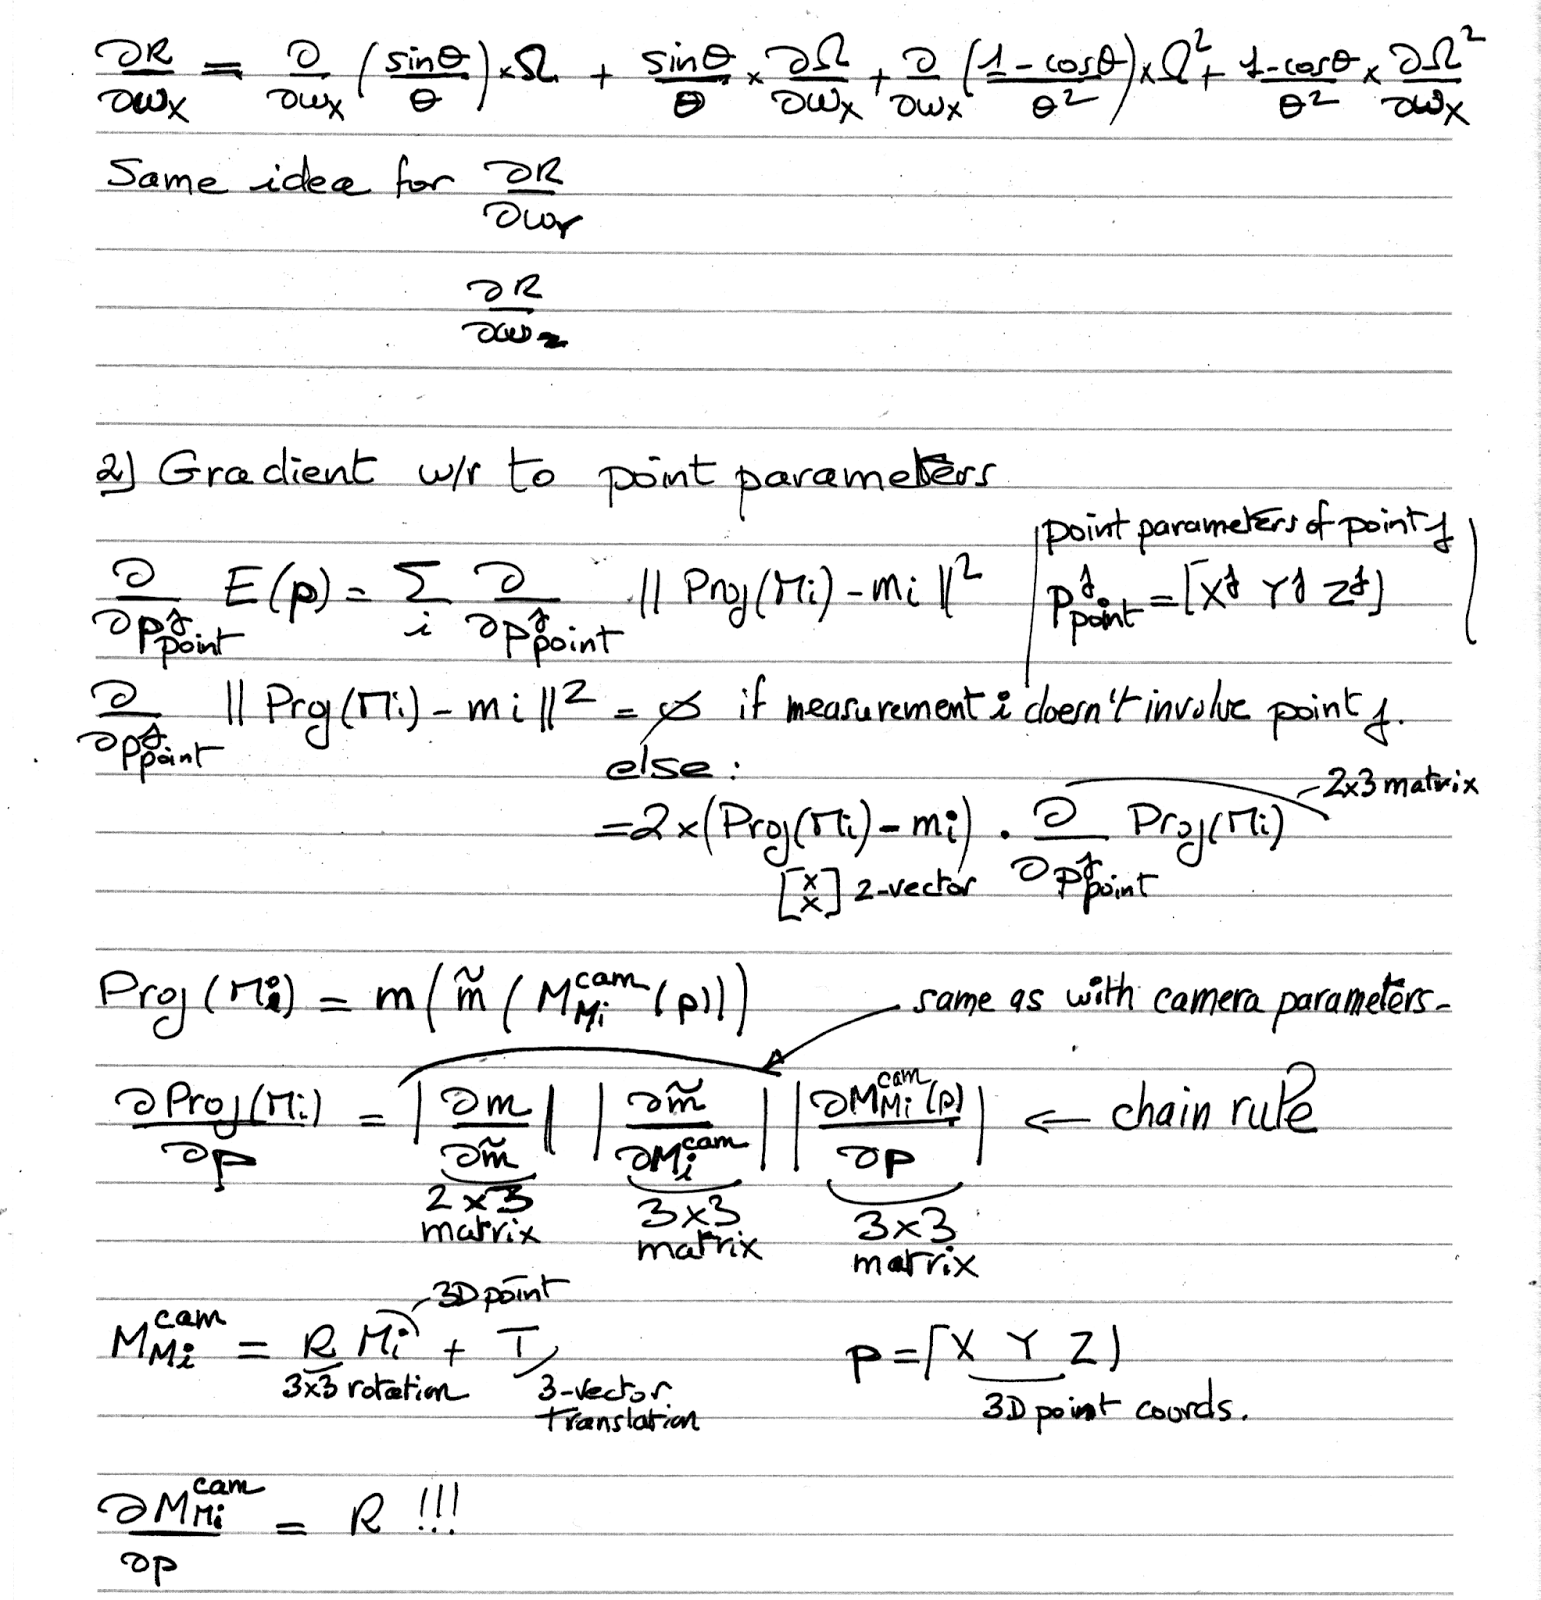 ∂R/∂ωx = ∂/∂ωx (sinθ/θ) × Ω + sinθ/θ × ∂Ω/∂ωx + ∂/∂ωx (1-cosθ/θ²) × Ω² + 1-cosθ/θ² × ∂Ω²/∂ωx
Same idea for ∂R/∂ωY
∂R/∂ωz
2) Gradient w/r to point parameters
point parameters of point j
∂/∂p^j_point E(p) = Σ_i ∂/∂p^j_point || Proj(Mi) - mi ||²
p^j_point = [X^j Y^j Z^j]
∂/∂p^j_point || Proj(Mi) - mi ||² = ∅ if measurement i doesn't involve point j.
else:
= 2 × (Proj(Mi) - mi) . ∂/∂p^j_point Proj(Mi)
2x3 matrix
[x x] 2-vector
Proj(Mi) = m(m̃(M^cam_Mi(p)))
same as with camera parameters-
∂Proj(Mi)/∂p = |∂m/∂m̃| |∂m̃/∂Mi^cam| |∂M^cam_Mi(p)/∂p| ← chain rule
2x3 matrix
3x3 matrix
3x3 matrix
3D point
M^cam_Mi = R Mi + T
p = [X Y Z]
3x3 rotation
3-vector translation
3D point coords.
∂M^cam_Mi/∂p = R !!!